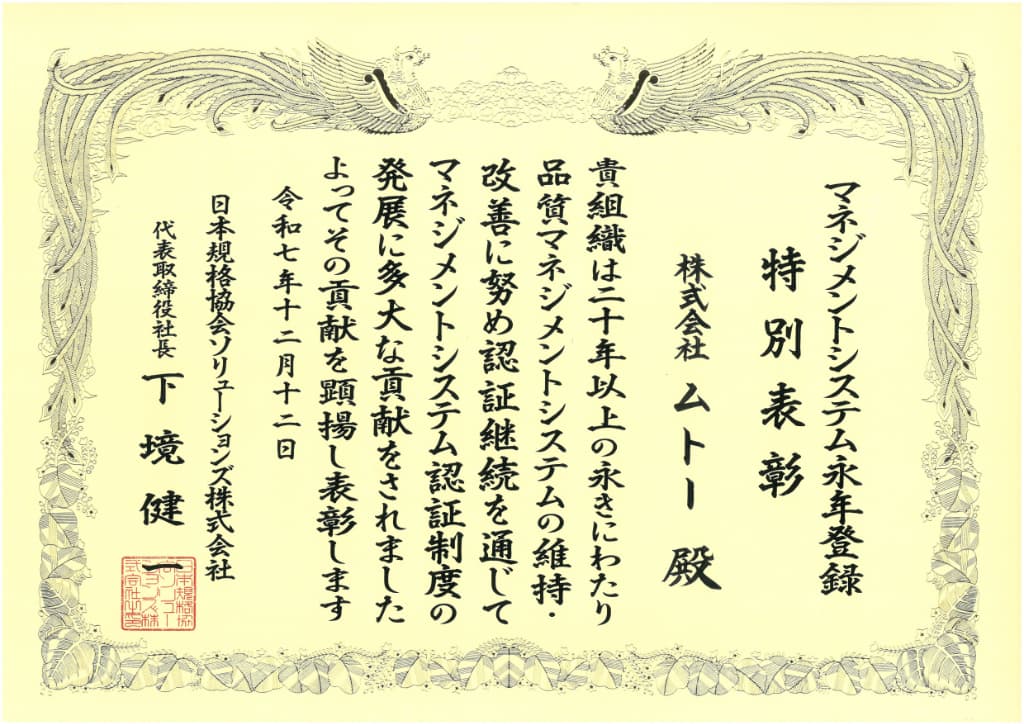 マネジメントシステム永年登録
特別表彰
株式会社 ムトー 殿
貴組織は二十年以上の永きにわたり
品質マネジメントシステムの維持・
改善に努め認証継続を通じて
マネジメントシステム認証制度の
発展に多大な貢献をされました
よってその貢献を顕揚し表彰します
令和七年十二月十二日
日本規格協会ソリューションズ株式会社
代表取締役社長 下境健一
日本規格協
会ソリュー
ションズ株
式会社之印